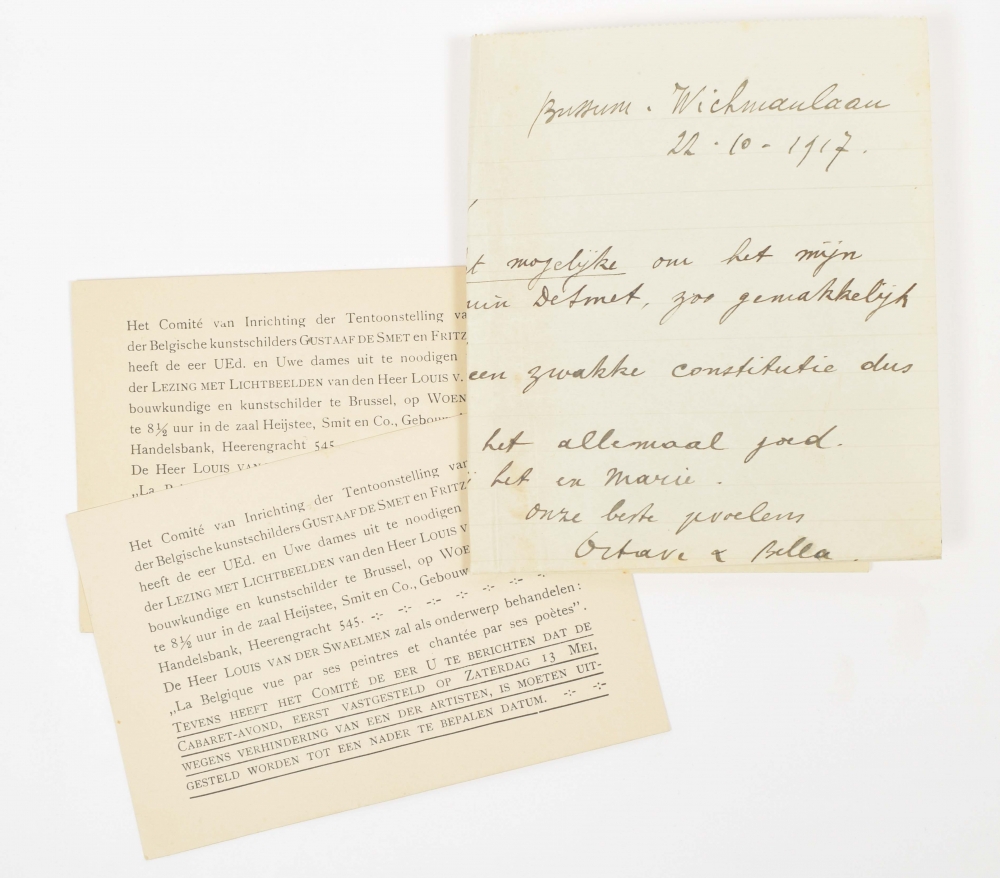 Bussum. Wichmanlaan
22-10-1917.
mogelijke om het mijn
DeSmet, zoo gemakkelijk
een zwakke constitutie dus
het allemaal goed.
het en Marie.
onze beste groetens
Octave & Bella.
Het Comité van Inrichting der Tentoonstelling va
der Belgische kunstschilders GUSTAAF DE SMET en FRITZ
heeft de eer UEd. en Uwe dames uit te noodigen
der LEZING MET LICHTBEELDEN van den Heer LOUIS V.
bouwkundige en kunstschilder te Brussel, op WOEN
te 8½ uur in de zaal Heijstee, Smit en Co., Gebou
Handelsbank, Heerengracht 545.
De Heer LOUIS VAN
„La
Het Comité van Inrichting der Tentoonstelling van
der Belgische kunstschilders GUSTAAF DE SMET en FRITZ
heeft de eer UEd. en Uwe dames uit te noodigen
der LEZING MET LICHTBEELDEN van den Heer LOUIS V
bouwkundige en kunstschilder te Brussel, op WOEN
te 8½ uur in de zaal Heijstee, Smit en Co., Gebouw
Handelsbank, Heerengracht 545. -:- -:- -:- -:- -:- -:- -:-
De Heer LOUIS VAN DER SWAELMEN zal als onderwerp behandelen:
„La Belgique vue par ses peintres et chantée par ses poètes".
TEVENS HEEFT HET COMITÉ DE EER U TE BERICHTEN DAT DE
CABARET-AVOND, EERST VASTGESTELD OP ZATERDAG 13 MEI,
WEGENS VERHINDERING VAN EEN DER ARTISTEN, IS MOETEN UIT-
GESTELD WORDEN TOT EEN NADER TE BEPALEN DATUM. -:- -:-